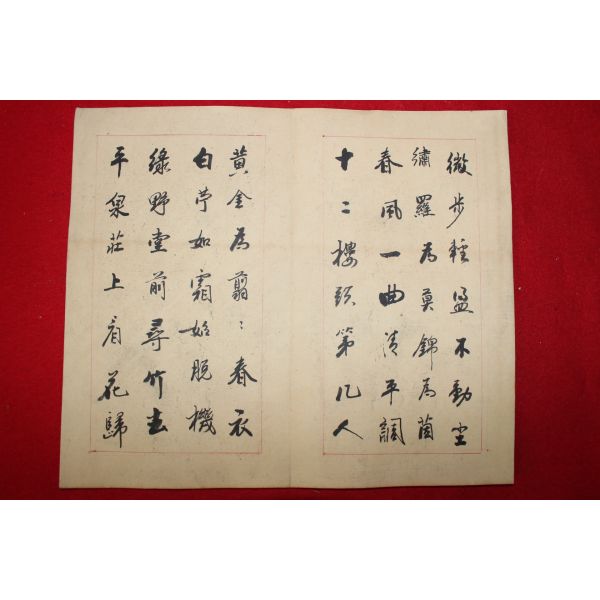 微步輕盈不動塵
繡羅為莫錦為茵
春風一曲清平調
十二樓頭第几人
黃金為翦〻春衣
白苧如霜始脫機
綠野堂前尋竹去
平泉莊上看花歸